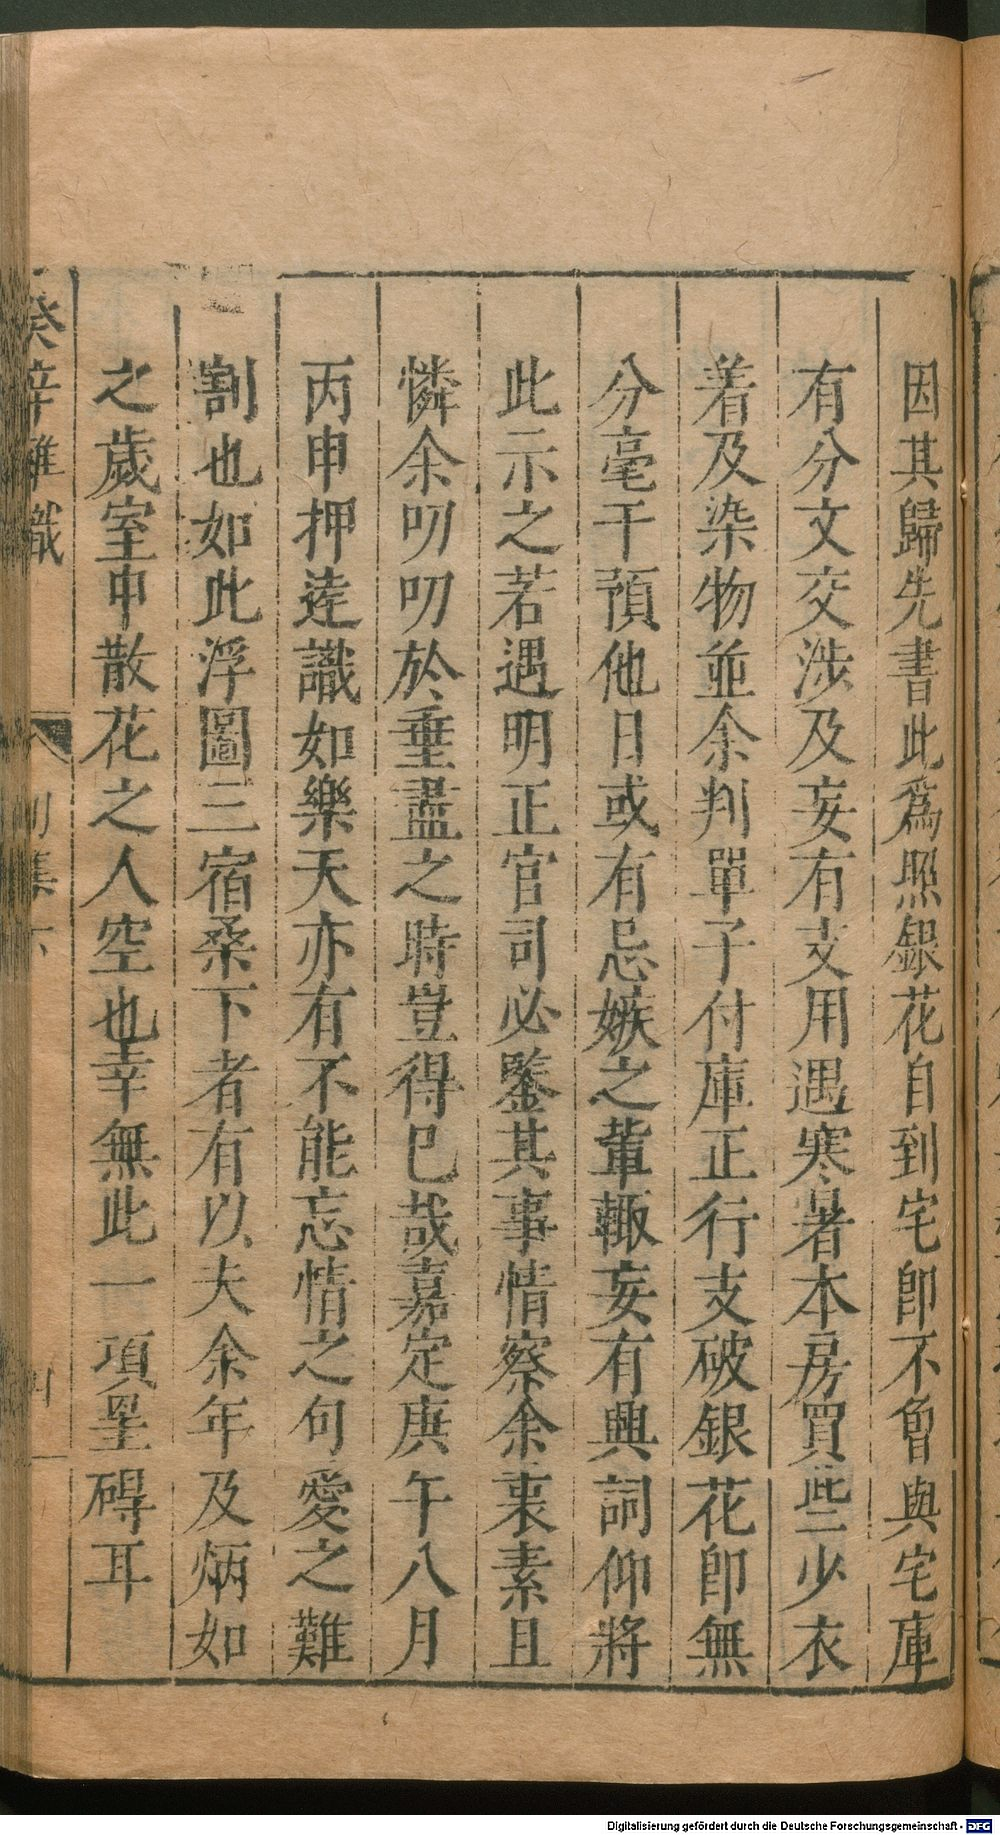 因其歸先書此爲照銀花自到宅卽不曾與宅庫
有分文交涉及妄有支用遇寒暑本房買些少衣
着及染物並余判單子付庫正行支破銀花卽無
分毫干預他日或有忌嫉之輩輙妄有興詞仰將
此示之若遇明正官司必鑒其事情察余衷素且
憐余叨叨於垂盡之時豈得已哉嘉定庚午八月
丙申押逵識如樂天亦有不能忘情之句愛之難
割也如此浮圖三宿桑下者有以夫余年及炳如
之歲室中散花之人空也幸無此一項罣碍耳
癸辛雜識
別集下
Digitalisierung gefördert durch die Deutsche Forschungsgemeinschaft - DFG